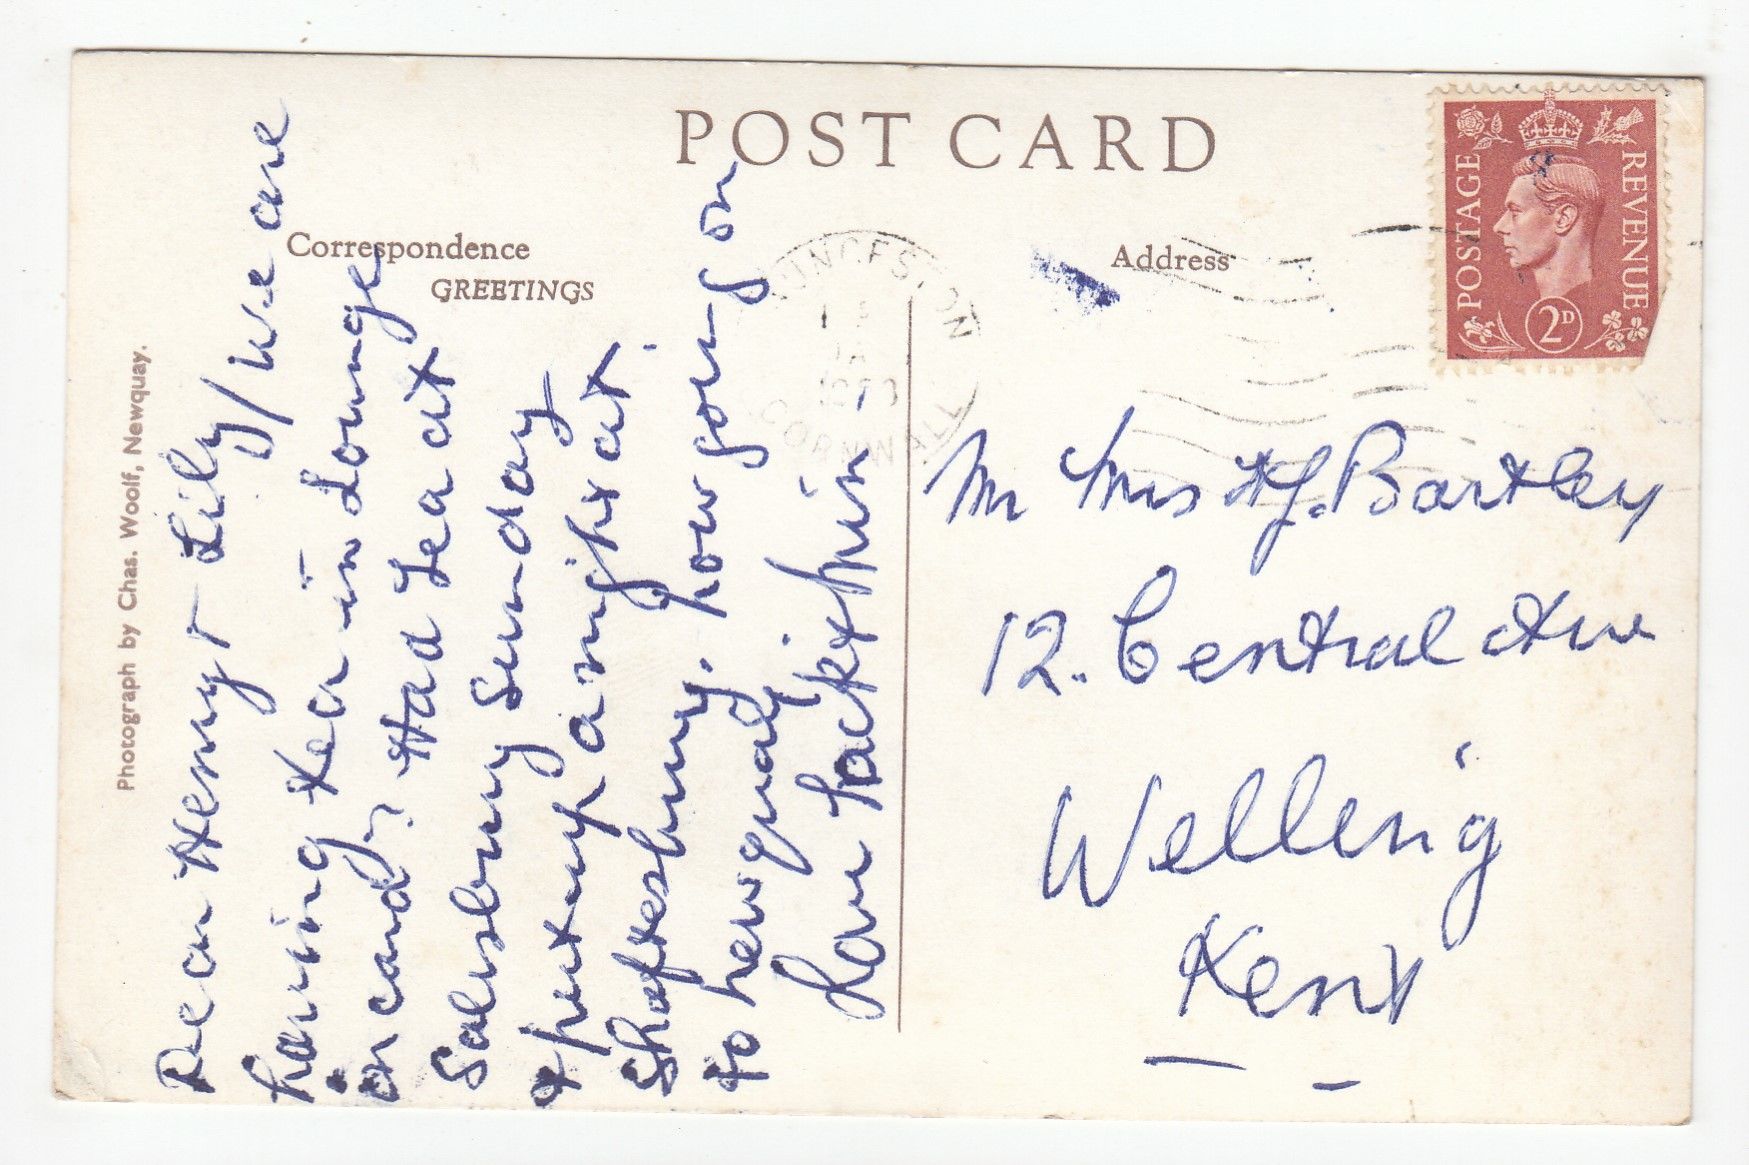 POST CARD
Correspondence
GREETINGS
Address
Photograph by Chas. Woolf, Newquay.
POSTAGE
REVENUE
2D
CORNWALL
Dear Henry + Lily/We are
having tea in Lounge
on card, Had Tea at
Salisbury Sunday
+ put up a night at
Shaftesbury. now going on
to newquay
Love Jack + Min
Mr Mrs H.J. Bartley
12. Central Ave
Welling
Kent